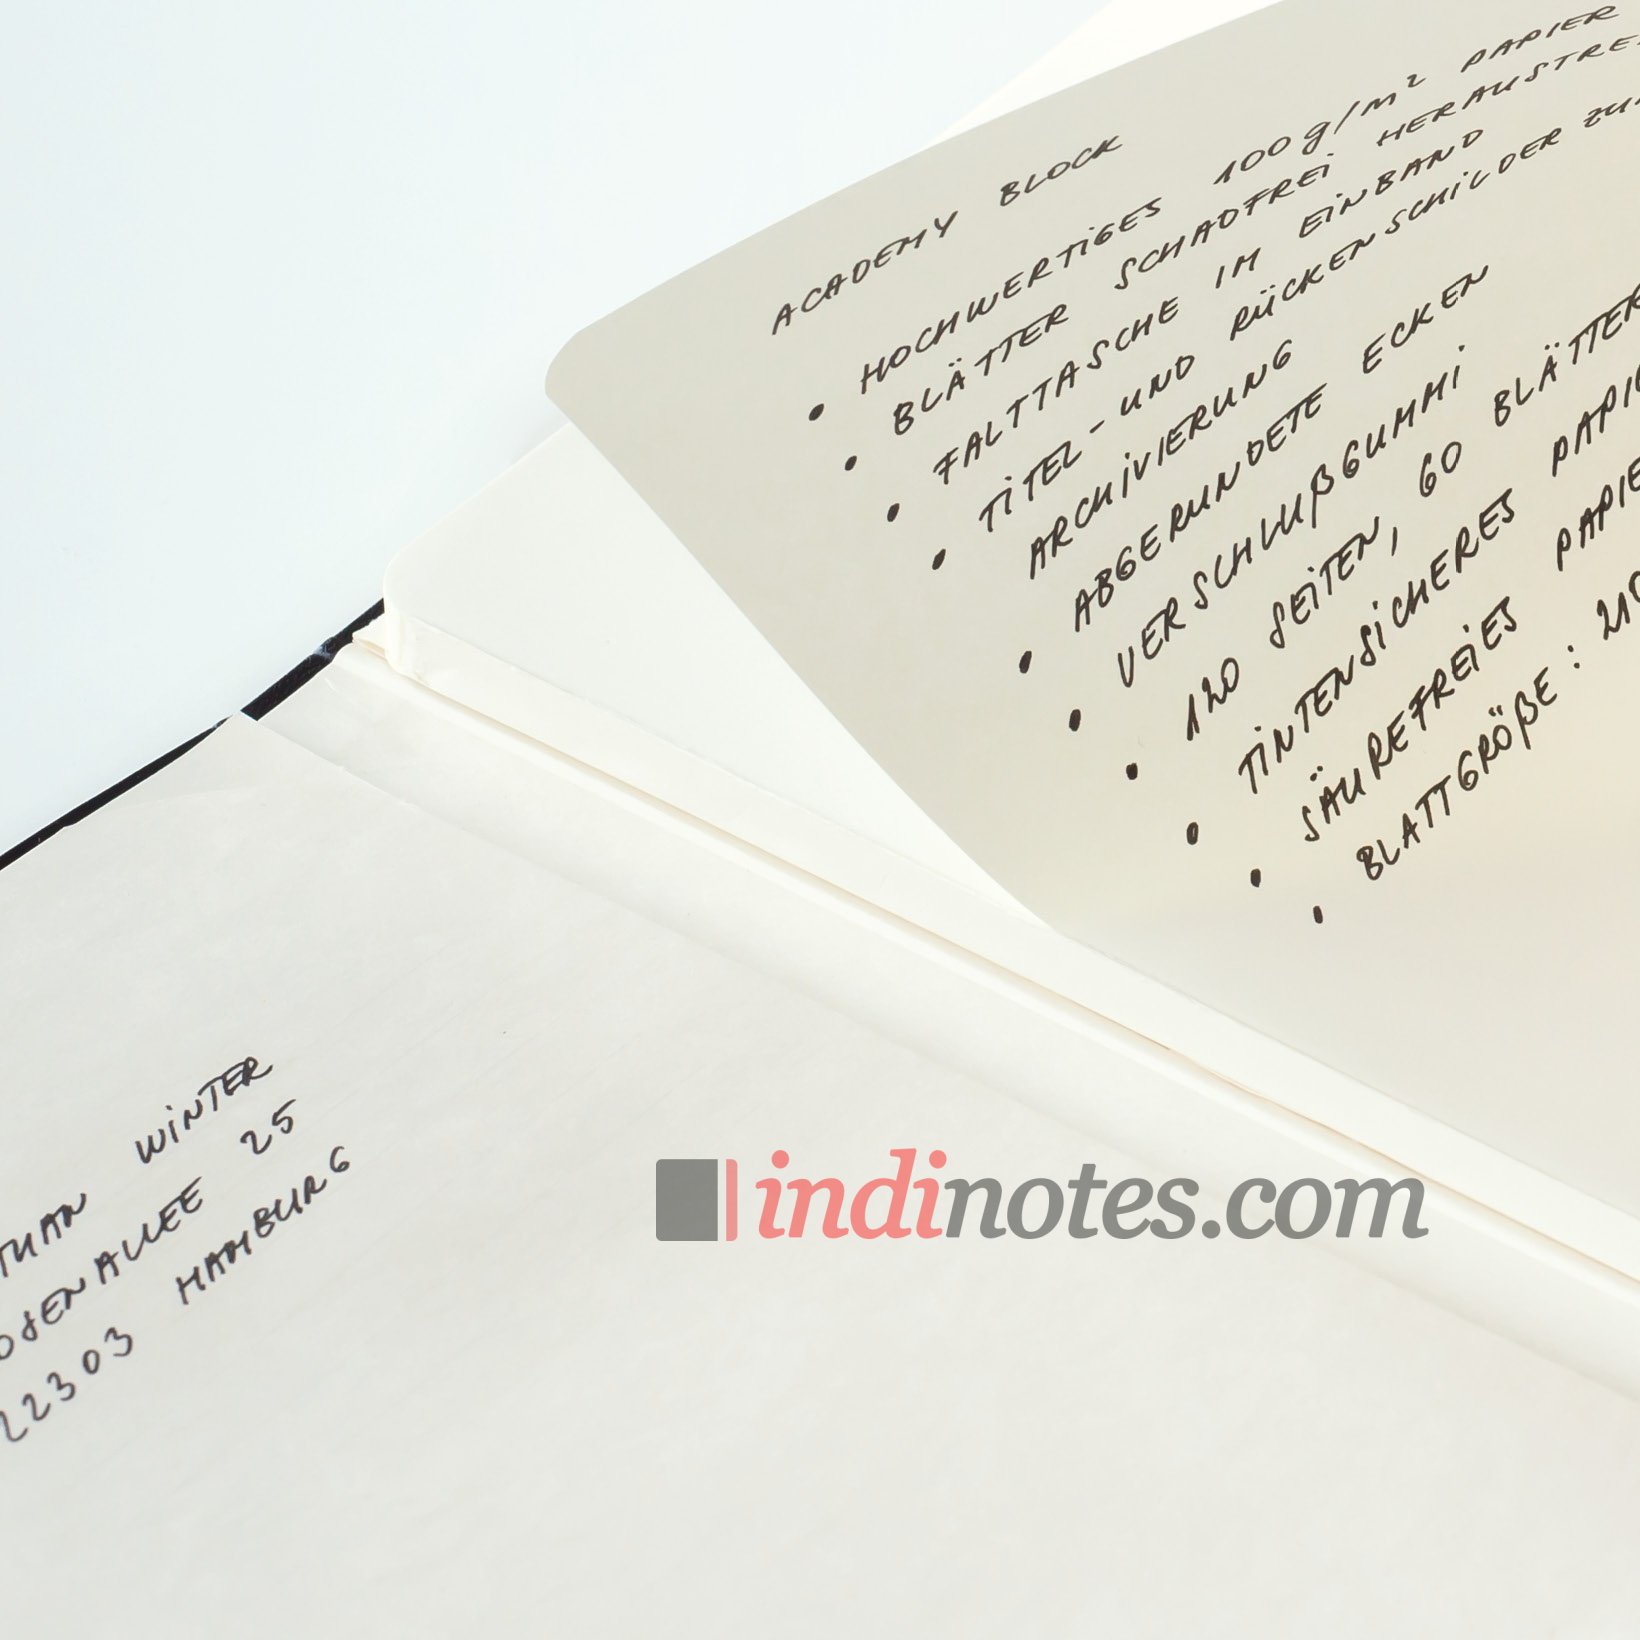 ACADEMY BLOCK
• HOCHWERTIGES 100g/m² PAPIER
• BLÄTTER SCHADFREI
• FALTTASCHE IM EINBAND
• TITEL- UND RÜCKENSCHILDER
ARCHIVIERUNG
• ABGERUNDETE ECKEN
• VERSCHLUßGUMMI
• 120 SEITEN, 60 BLÄTTER
• TINTENSICHERES
• SÄUREFREIES
• BLATTGRÖßE:
WINTER
25
22303 HAMBURG
indinotes.com